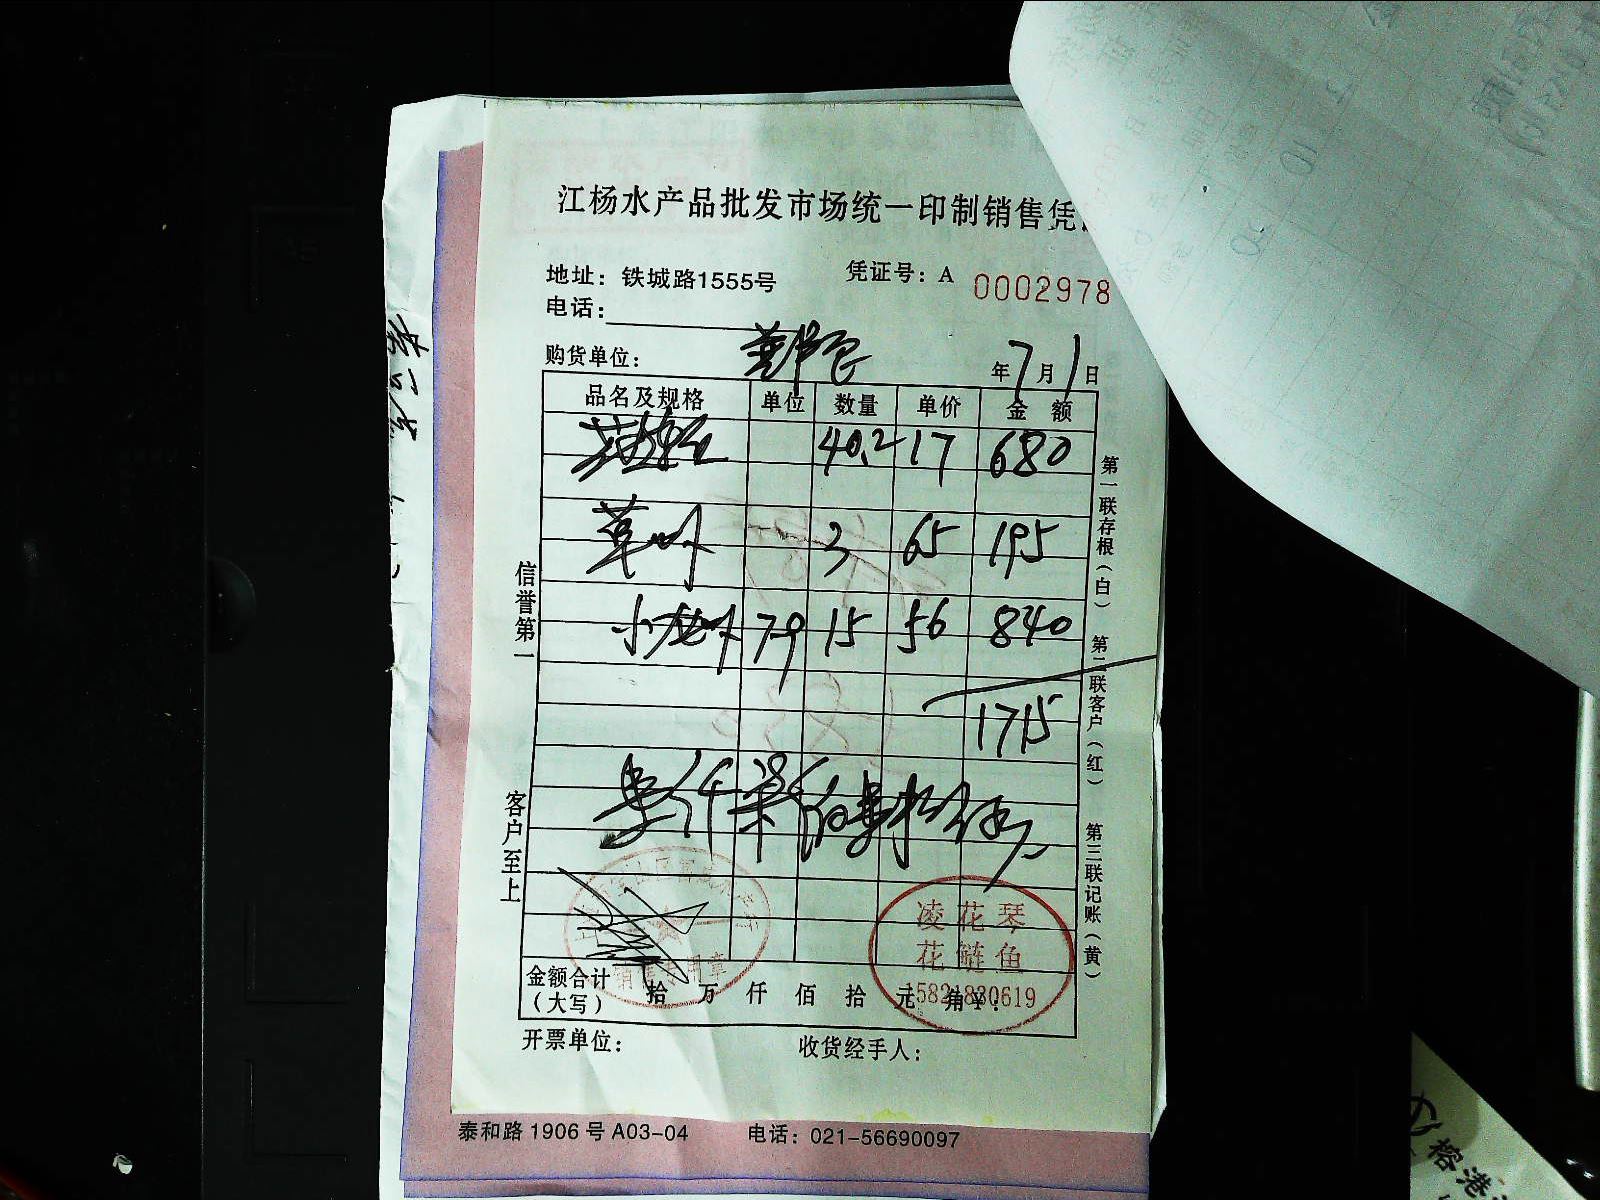 江杨水产品批发市场统一印制销售凭
地址：铁城路1555号 凭证号：A 0002978
电话：
购货单位： 年7月1日
品名及规格 单位 数量 单价 金额
40.2 17 680
草虾 3 65 195
小龙虾 79 15 56 840
1715
壹仟柒佰壹拾伍元
信誉第一
客户至上
第一联存根（白）
第二联客户（红）
第三联记账（黄）
凌花琴
花鲢鱼
15821830619
金额合计（大写） 拾 万 仟 佰 拾 元 角 ¥：
开票单位： 收货经手人：
泰和路1906号A03-04 电话：021-56690097
榕港